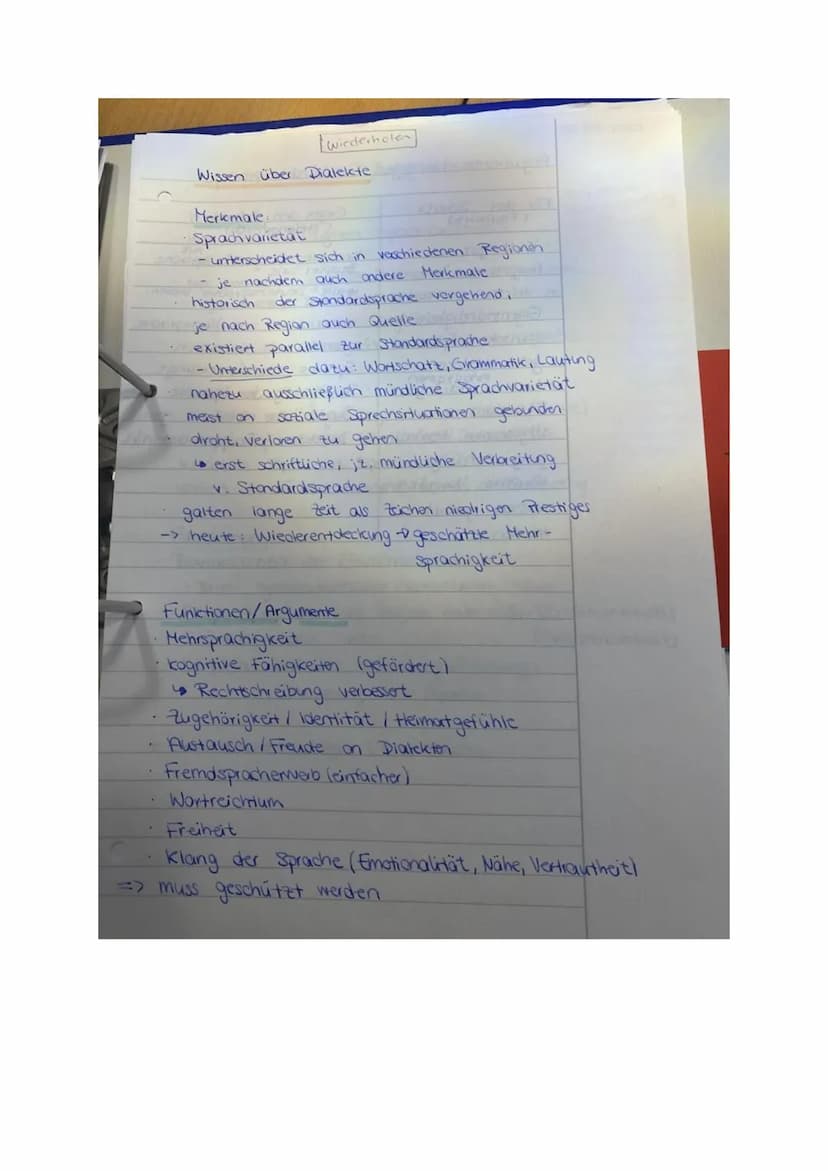 Wiederholen
Wissen über Dialekte
Merkmale:
· Sprachvarietät
- unterscheidet sich in verschiedenen Regionen
- je nachdem auch andere Merkmale
· historisch der Standardsprache vorgehend,
je nach Region auch Quelle
· existiert parallel zur Standardsprache
- Unterschiede dazu: Wortschatz, Grammatik, Lautung
· nahezu ausschließlich mündliche Sprachvarietät
· meist an soziale Sprechsituationen gebunden
· droht, verloren zu gehen
↳ erst schriftliche, jz. mündliche Verbreitung
v. Standardsprache
· galten lange Zeit als Zeichen niedrigen Prestiges
-> heute: Wiederentdeckung -> geschätzte Mehr-
sprachigkeit
Funktionen/Argumente
· Mehrsprachigkeit
· kognitive Fähigkeiten (gefördert)
↳ Rechtschreibung verbessert
· Zugehörigkeit / Identität / Heimatgefühle
· Austausch / Freude an Dialekten
· Fremdspracherwerb (einfacher)
· Wortreichtum
· Freiheit
· Klang der Sprache (Emotionalität, Nähe, Vertrautheit)
=> muss geschützt werden